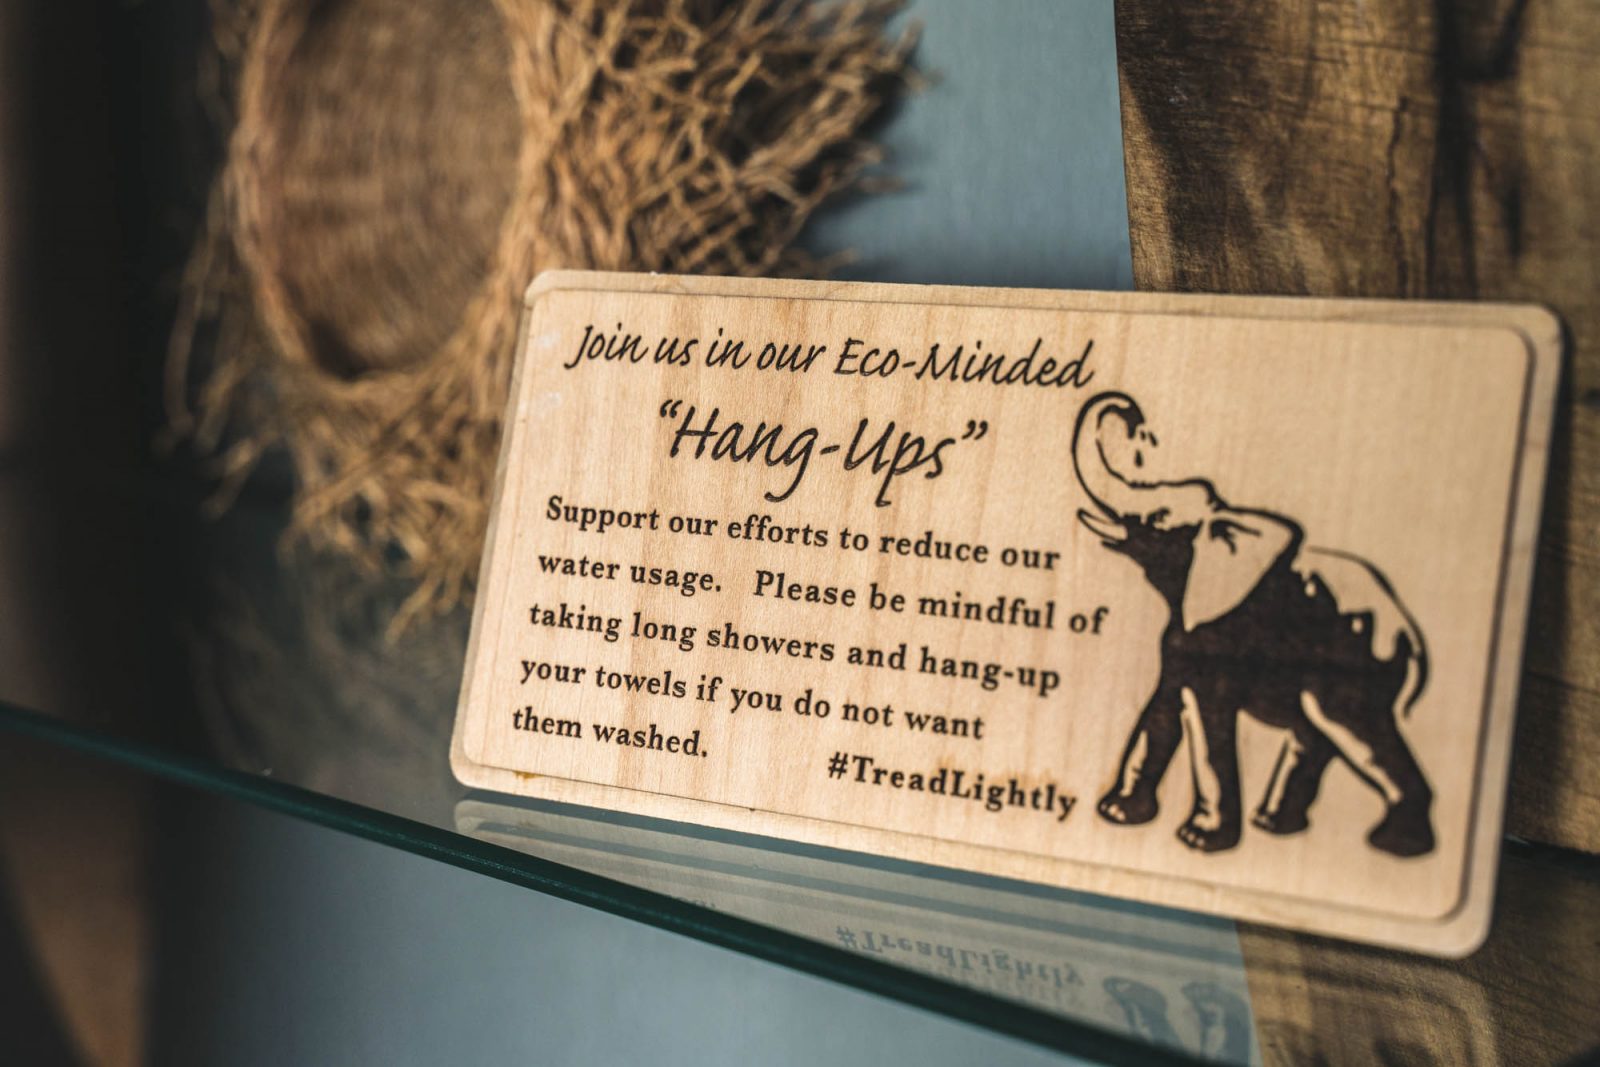 Join us in our Eco-Minded
“Hang-Ups”
Support our efforts to reduce our
water usage. Please be mindful of
taking long showers and hang-up
your towels if you do not want
them washed.
#TreadLightly
#TreadLightly